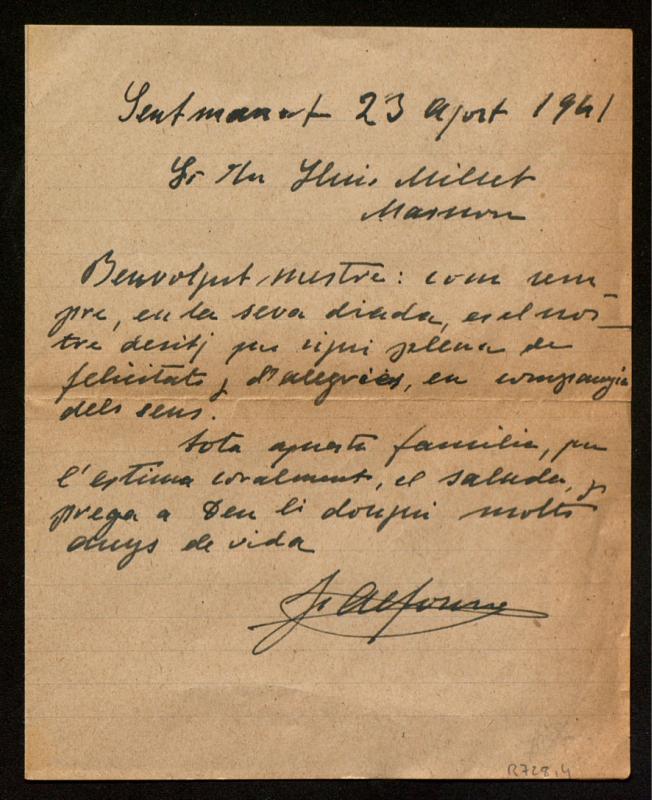 Sentmanat 23 Agost 1941
Sr En Lluis Millet
Masnou
Benvolgut mestre: com sem
pre, en la seva diada, es el nos-
tre desitj que sigui plena de
felicitats y d'alegries, en companyia
dels seus.
Tota aquesta familia, que
l'estima coralment, el saluda, y
prega a Deu li dongui molts
anys de vida
R728,4